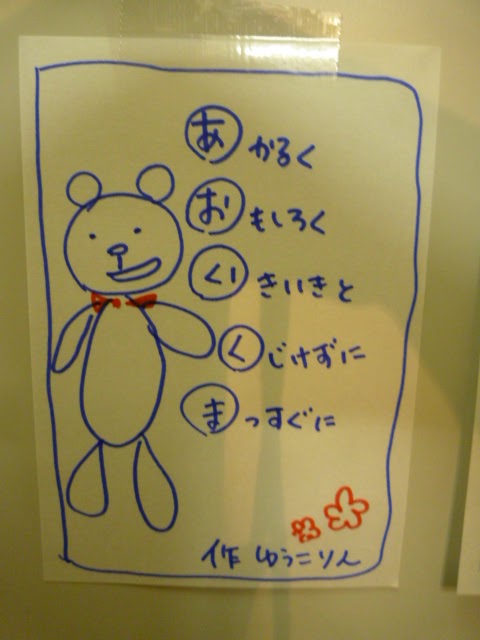 あかるく
おもしろく
いきいきと
くじけずに
まっすぐに
作 ゆうこりん